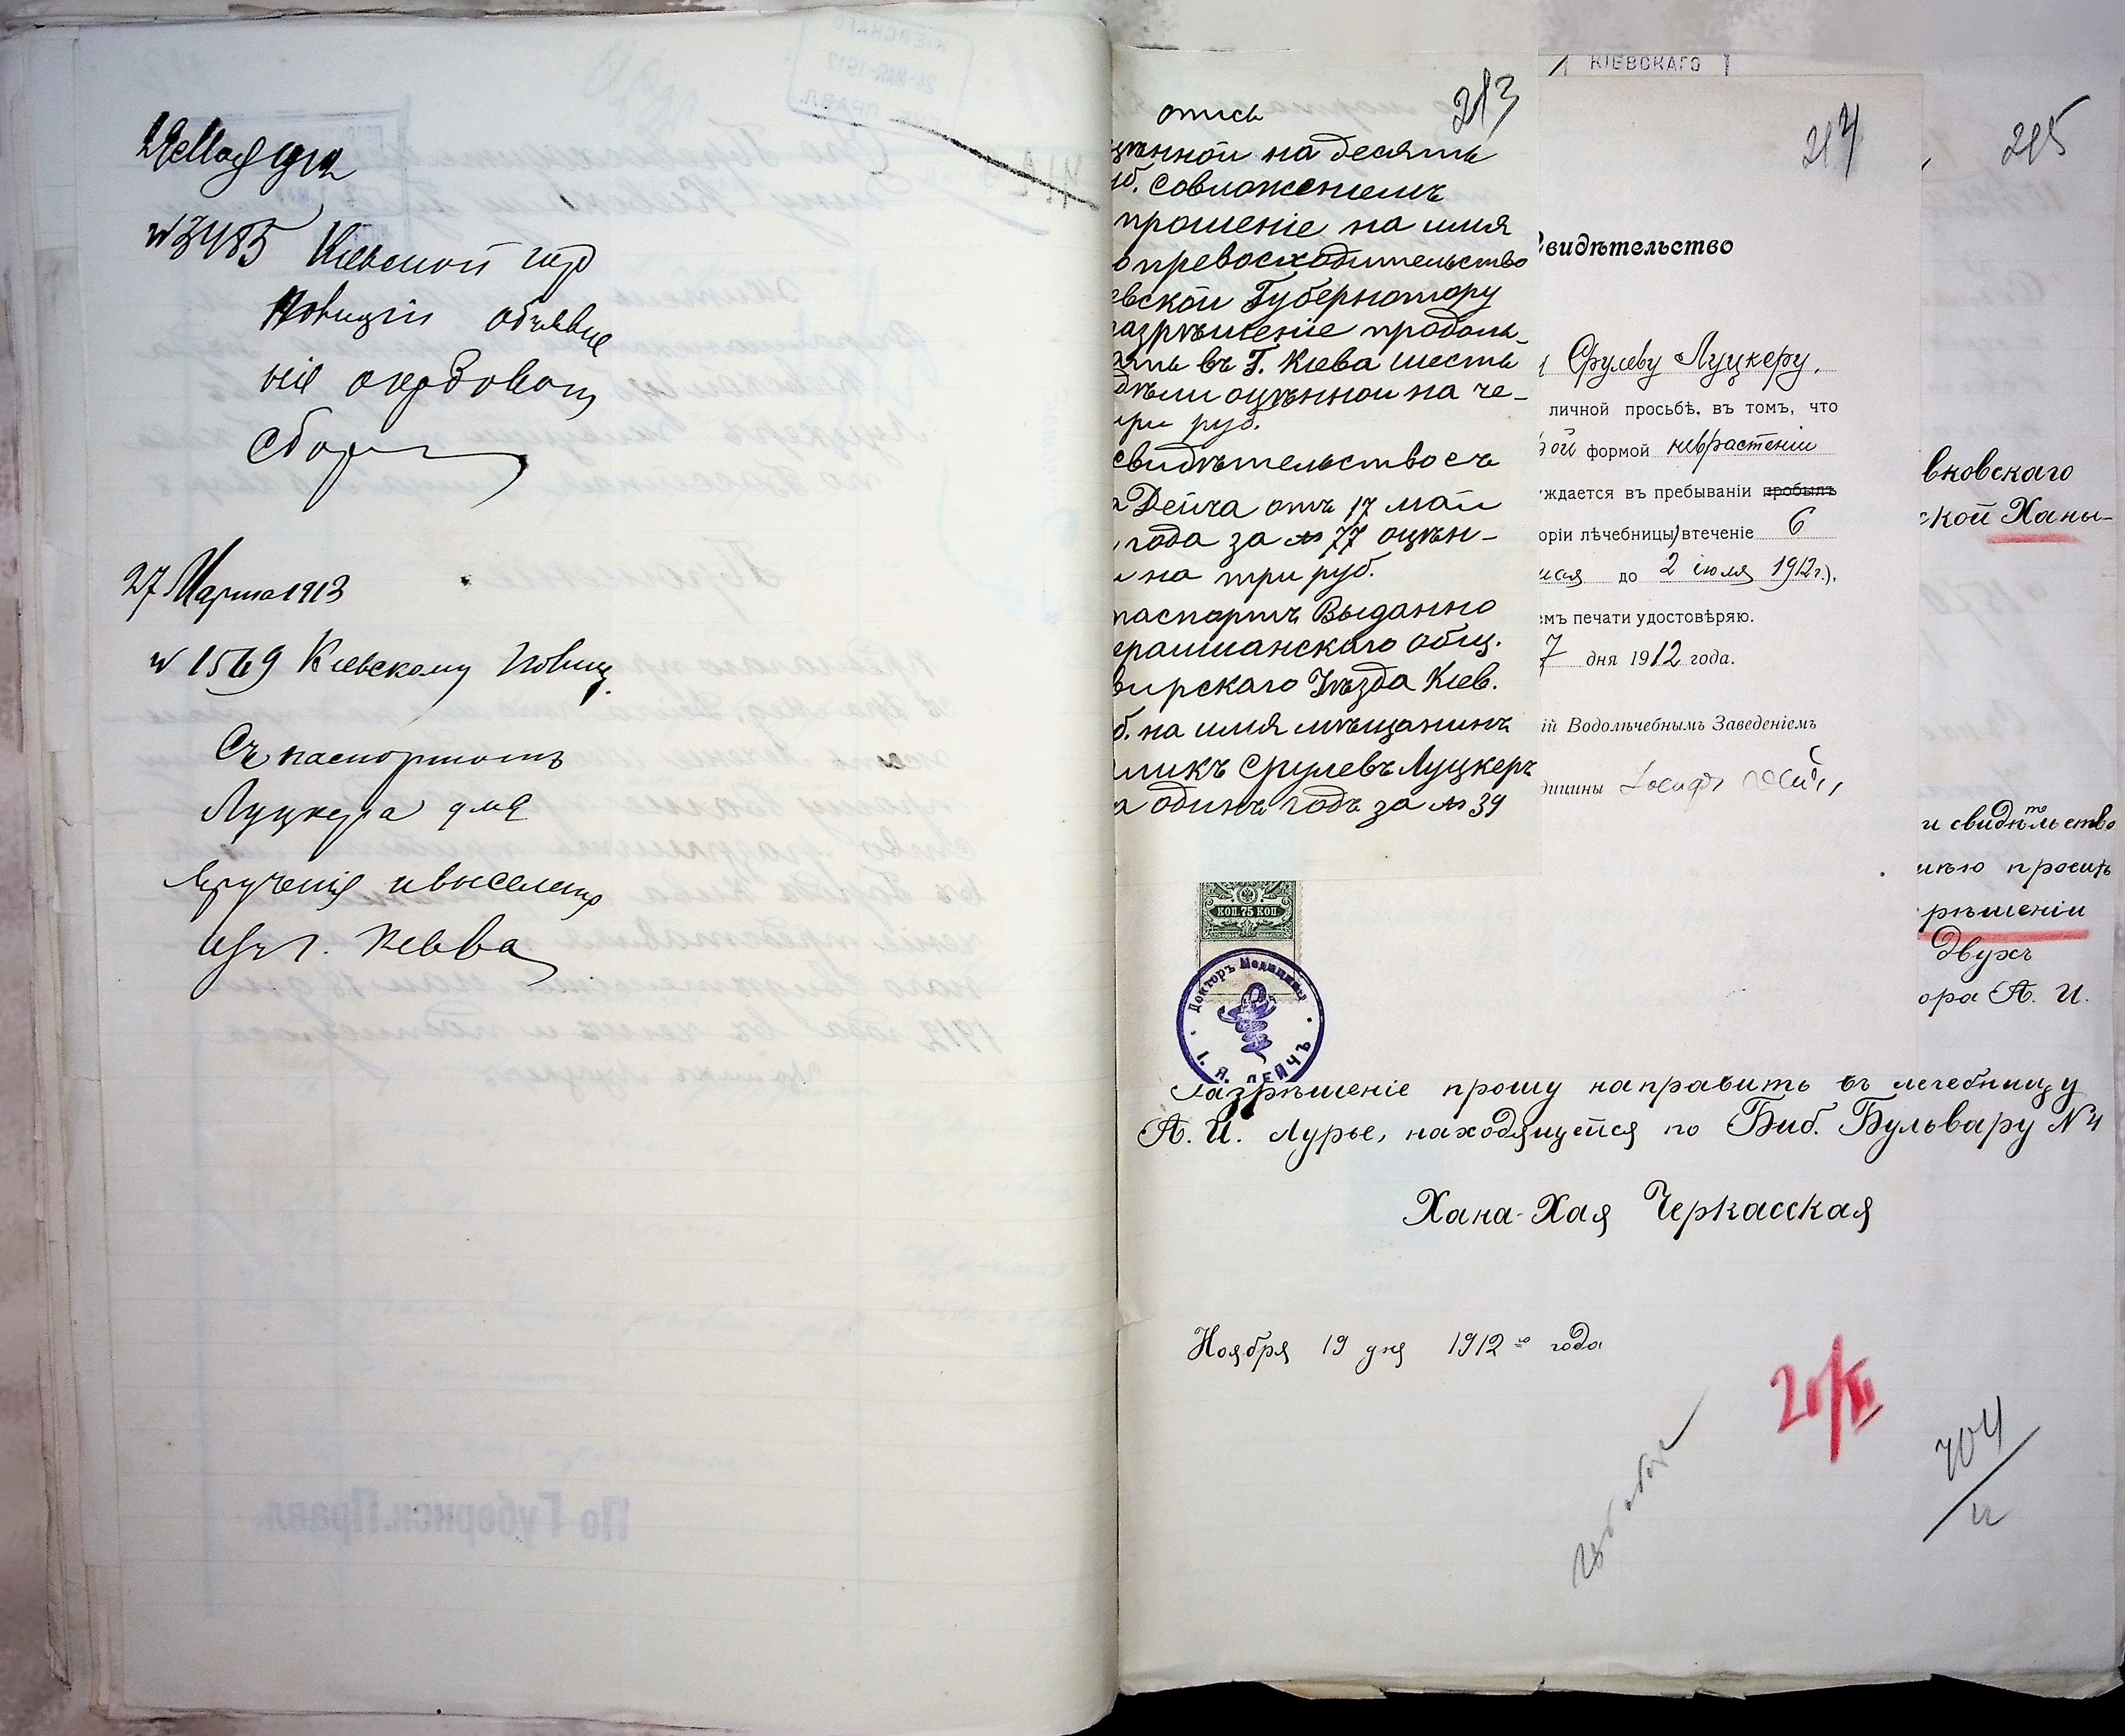 № 3485 Кіевской гор
Полиціи объявле
ніе
Сбор
27 Марта 1913
№ 1569 Кіевскому Полиц.
Съ паспортомъ
Луцкера для
врученія и выселенія
изъ г. Кіева
опись 213
цѣнной на десять
уб. Совложеніемъ
прошеніе на имя
о превосходительство
евской Губернатору
разрѣшеніе продол-
ять въ Г. Кіева шесть
дѣли оцѣнной на че-
ыри руб.
свидѣтельство съ
а Дейча отъ 17 май
года за № 77 оцѣн-
и на три руб.
паспортъ Выданно
ерашанскаго общ.
вирскаго Уѣзда Кіев.
б. на имя мѣщанинъ
мликъ Срулевъ Луцкеръ
а одинъ годъ за № 39
КІЕВСКАГО
214
видѣтельство
Срулеву Луцкеру,
личной просьбѣ, въ томъ, что
ой формой неврастеніи
уждается въ пребываніи пробылъ
оріи лѣчебницы) втеченіе 6
мая до 2 іюля 1912 г.),
емъ печати удостовѣряю.
7 дня 1912 года.
ій Водолѣчебнымъ Заведеніемъ
дицины Іосифъ Дейчъ
215
вковскаго
ской Ханы-
и свидѣтельство
имѣю просить
рѣшеніи
двухъ
ора А. И.
КОП. 75 КОП.
Докторъ Медицины
І. Я. ДЕЙЧЪ
Разрѣшеніе прошу направить въ лечебницу
А. И. Лурье, находящуюся по Биб. Бульвару № 4
Хана-Хая Черкасская
Ноября 19 дня 1912 го года
20/XI
704/11